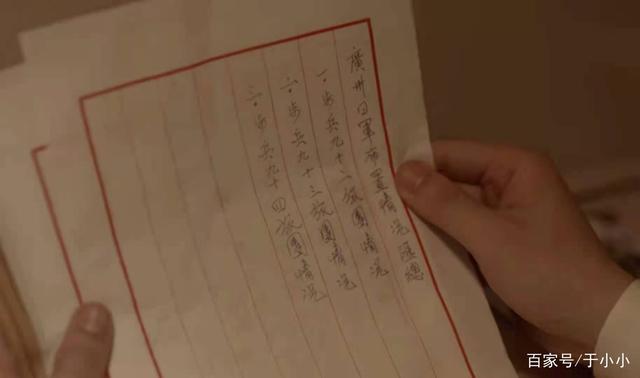 廣州日軍布置情况匯總
一·步兵九十二旅團情况
二·步兵九十三旅團情况
三·步兵九十四旅團情况
百家号/于小小